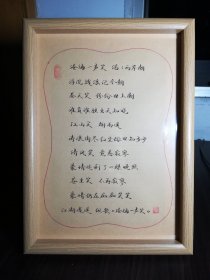 沧海一声笑 滔滔两岸潮
浮沉随浪记今朝
苍天笑 纷纷世上潮
谁负谁胜出天知晓
江山笑 烟雨遥
涛浪淘尽红尘俗世知多少
清风笑 竟惹寂寥
豪情还剩了一襟晚照
苍生笑 不再寂寥
豪情仍在痴痴笑笑
江湖
《沧海一声笑》